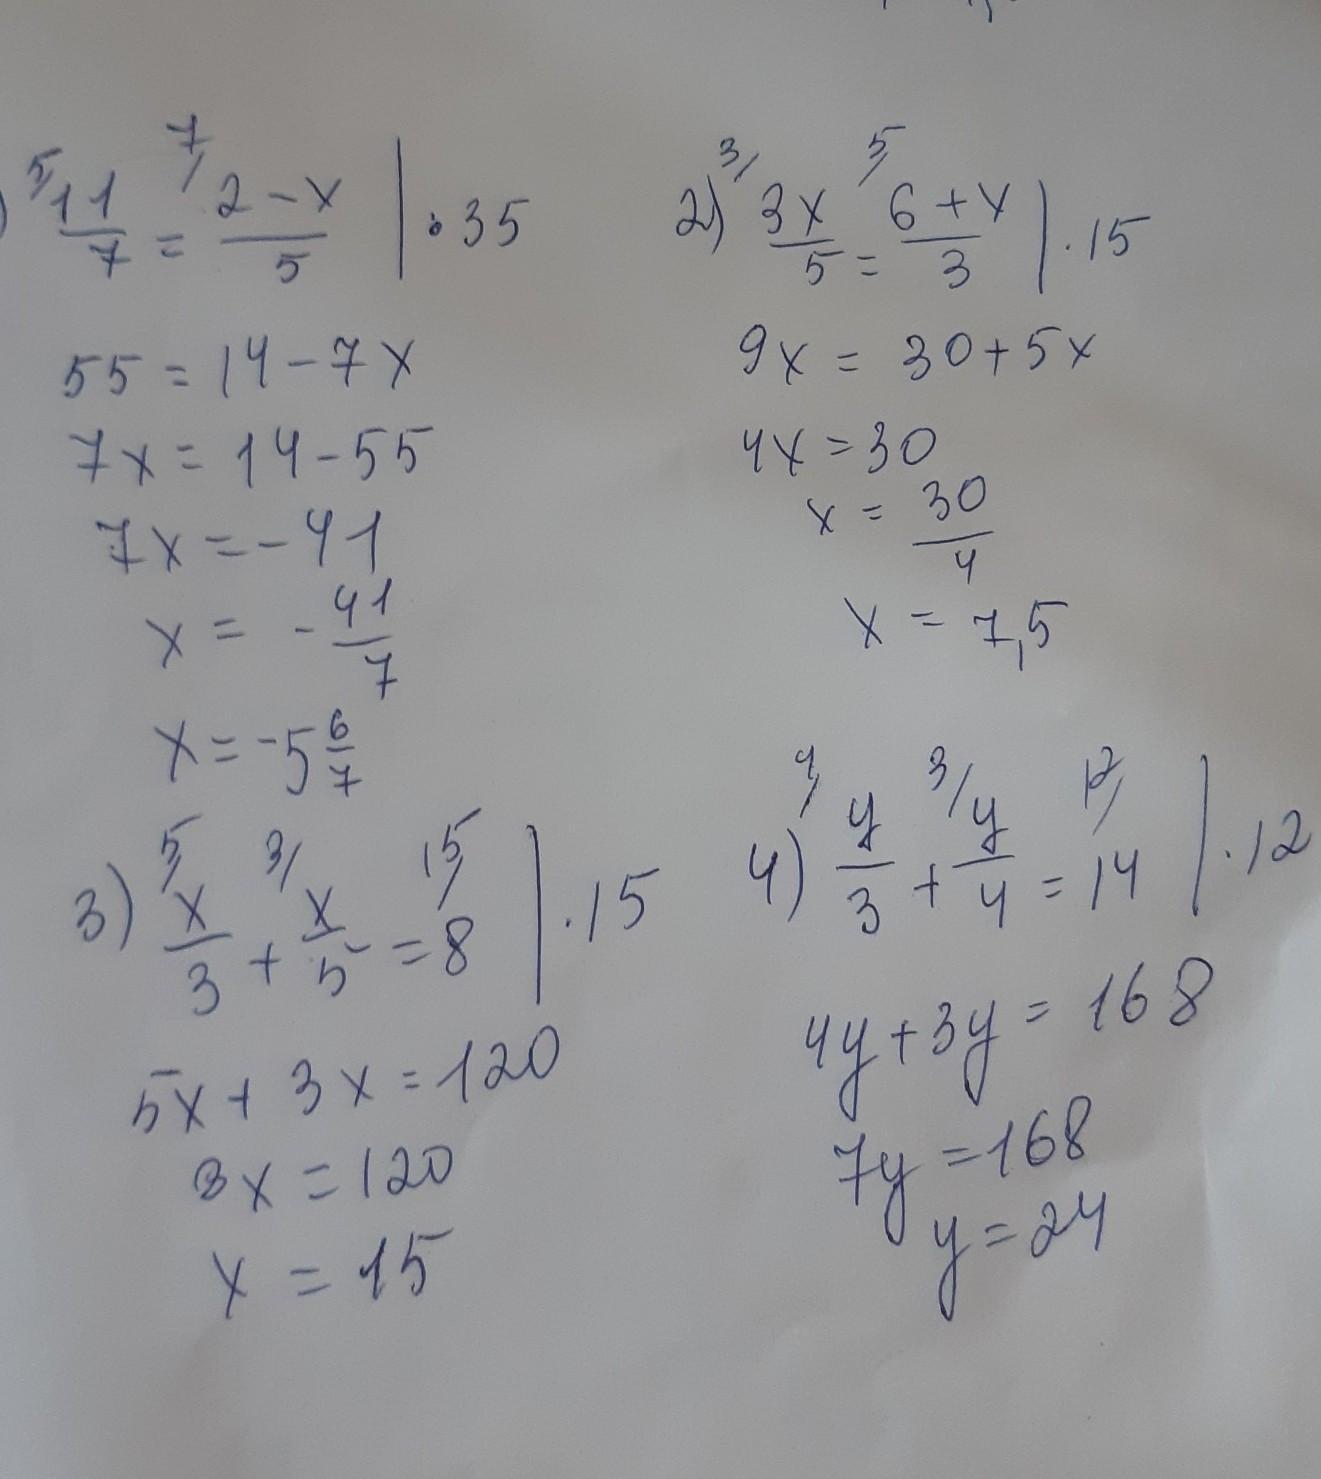 ) 5/ 11/7 = 7/ (2-x)/5 | · 35
55 = 14 - 7x
7x = 14 - 55
7x = -41
x = - 41/7
x = -5 6/7
2) 3/ 3x/5 = 5/ (6+x)/3 | · 15
9x = 30 + 5x
4x = 30
x = 30/4
x = 7,5
3) 5/ x/3 + 3/ x/5 = 15/ 8 | · 15
5x + 3x = 120
8x = 120
x = 15
4) 4/ y/3 + 3/ y/4 = 12/ 14 | · 12
4y + 3y = 168
7y = 168
y = 24